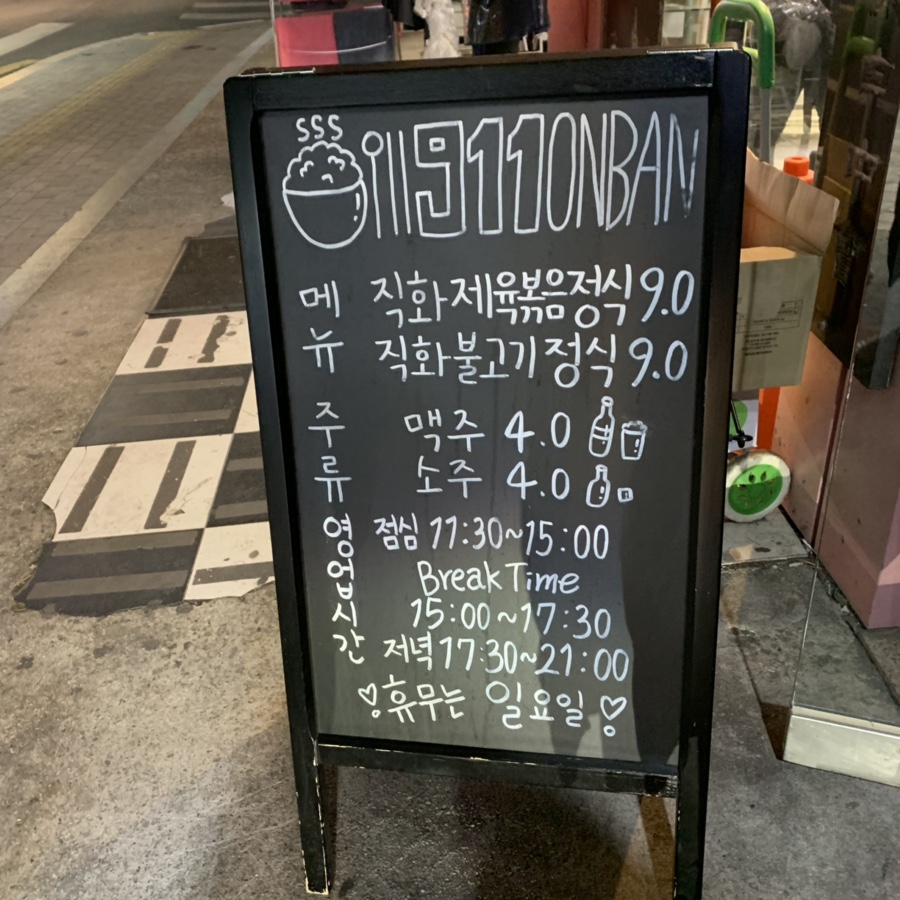 911ONBAN
메뉴
직화제육볶음정식 9.0
직화불고기정식 9.0
주류
맥주 4.0
소주 4.0
영업시간
점심 11:30~15:00
Break Time
15:00~17:30
저녁 17:30~21:00
휴무는 일요일